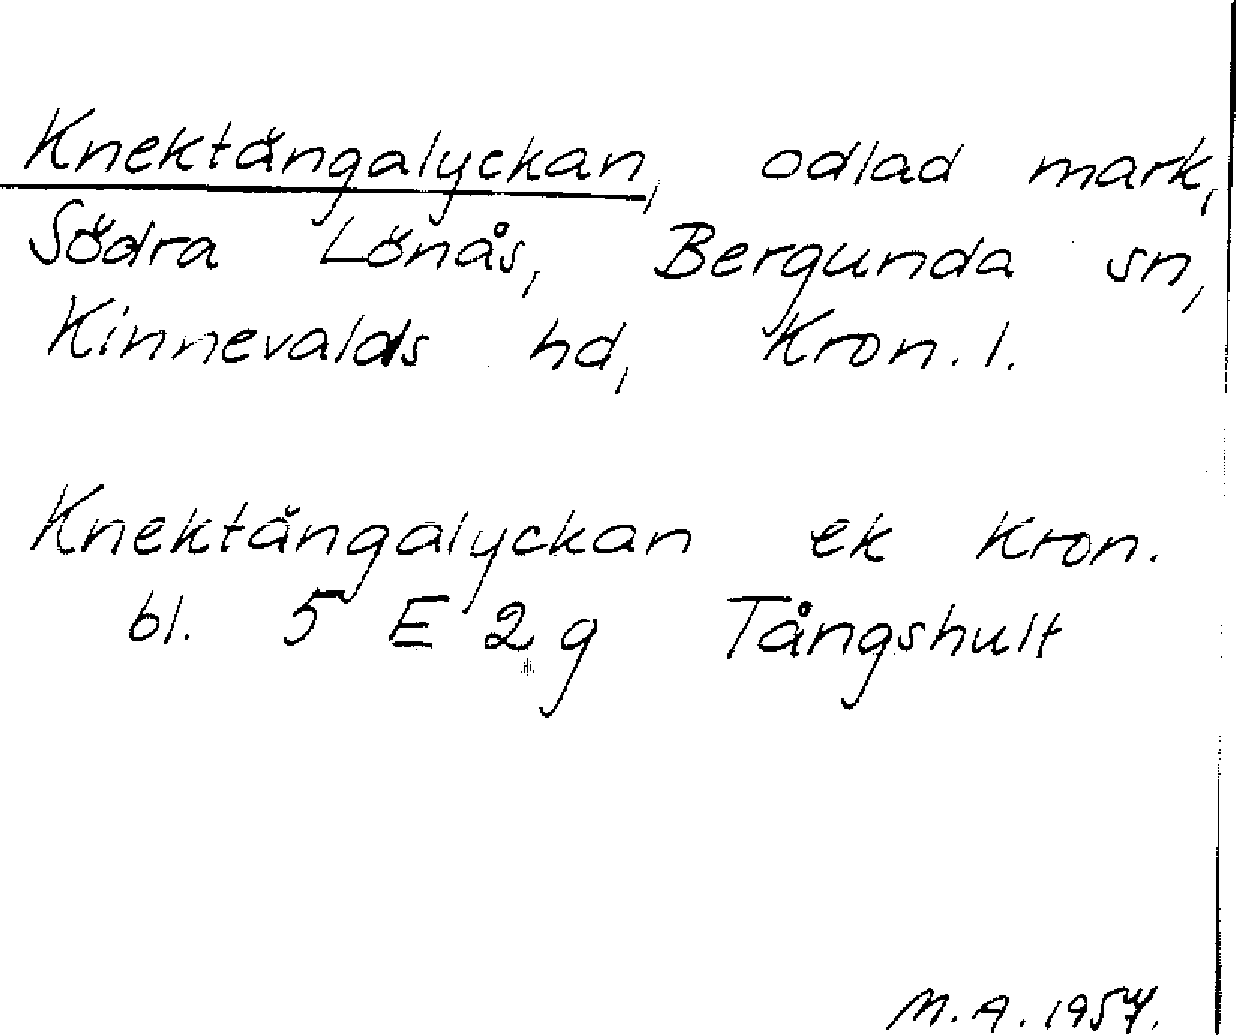 Knektängalyckan, odlad mark,
Södra Lönås, Bergunda sn,
Kinnevalds hd, Kron. l.
Knektängalyckan ek Kron.
bl. 5 E 2 g Tångshult
M. A. 1957.